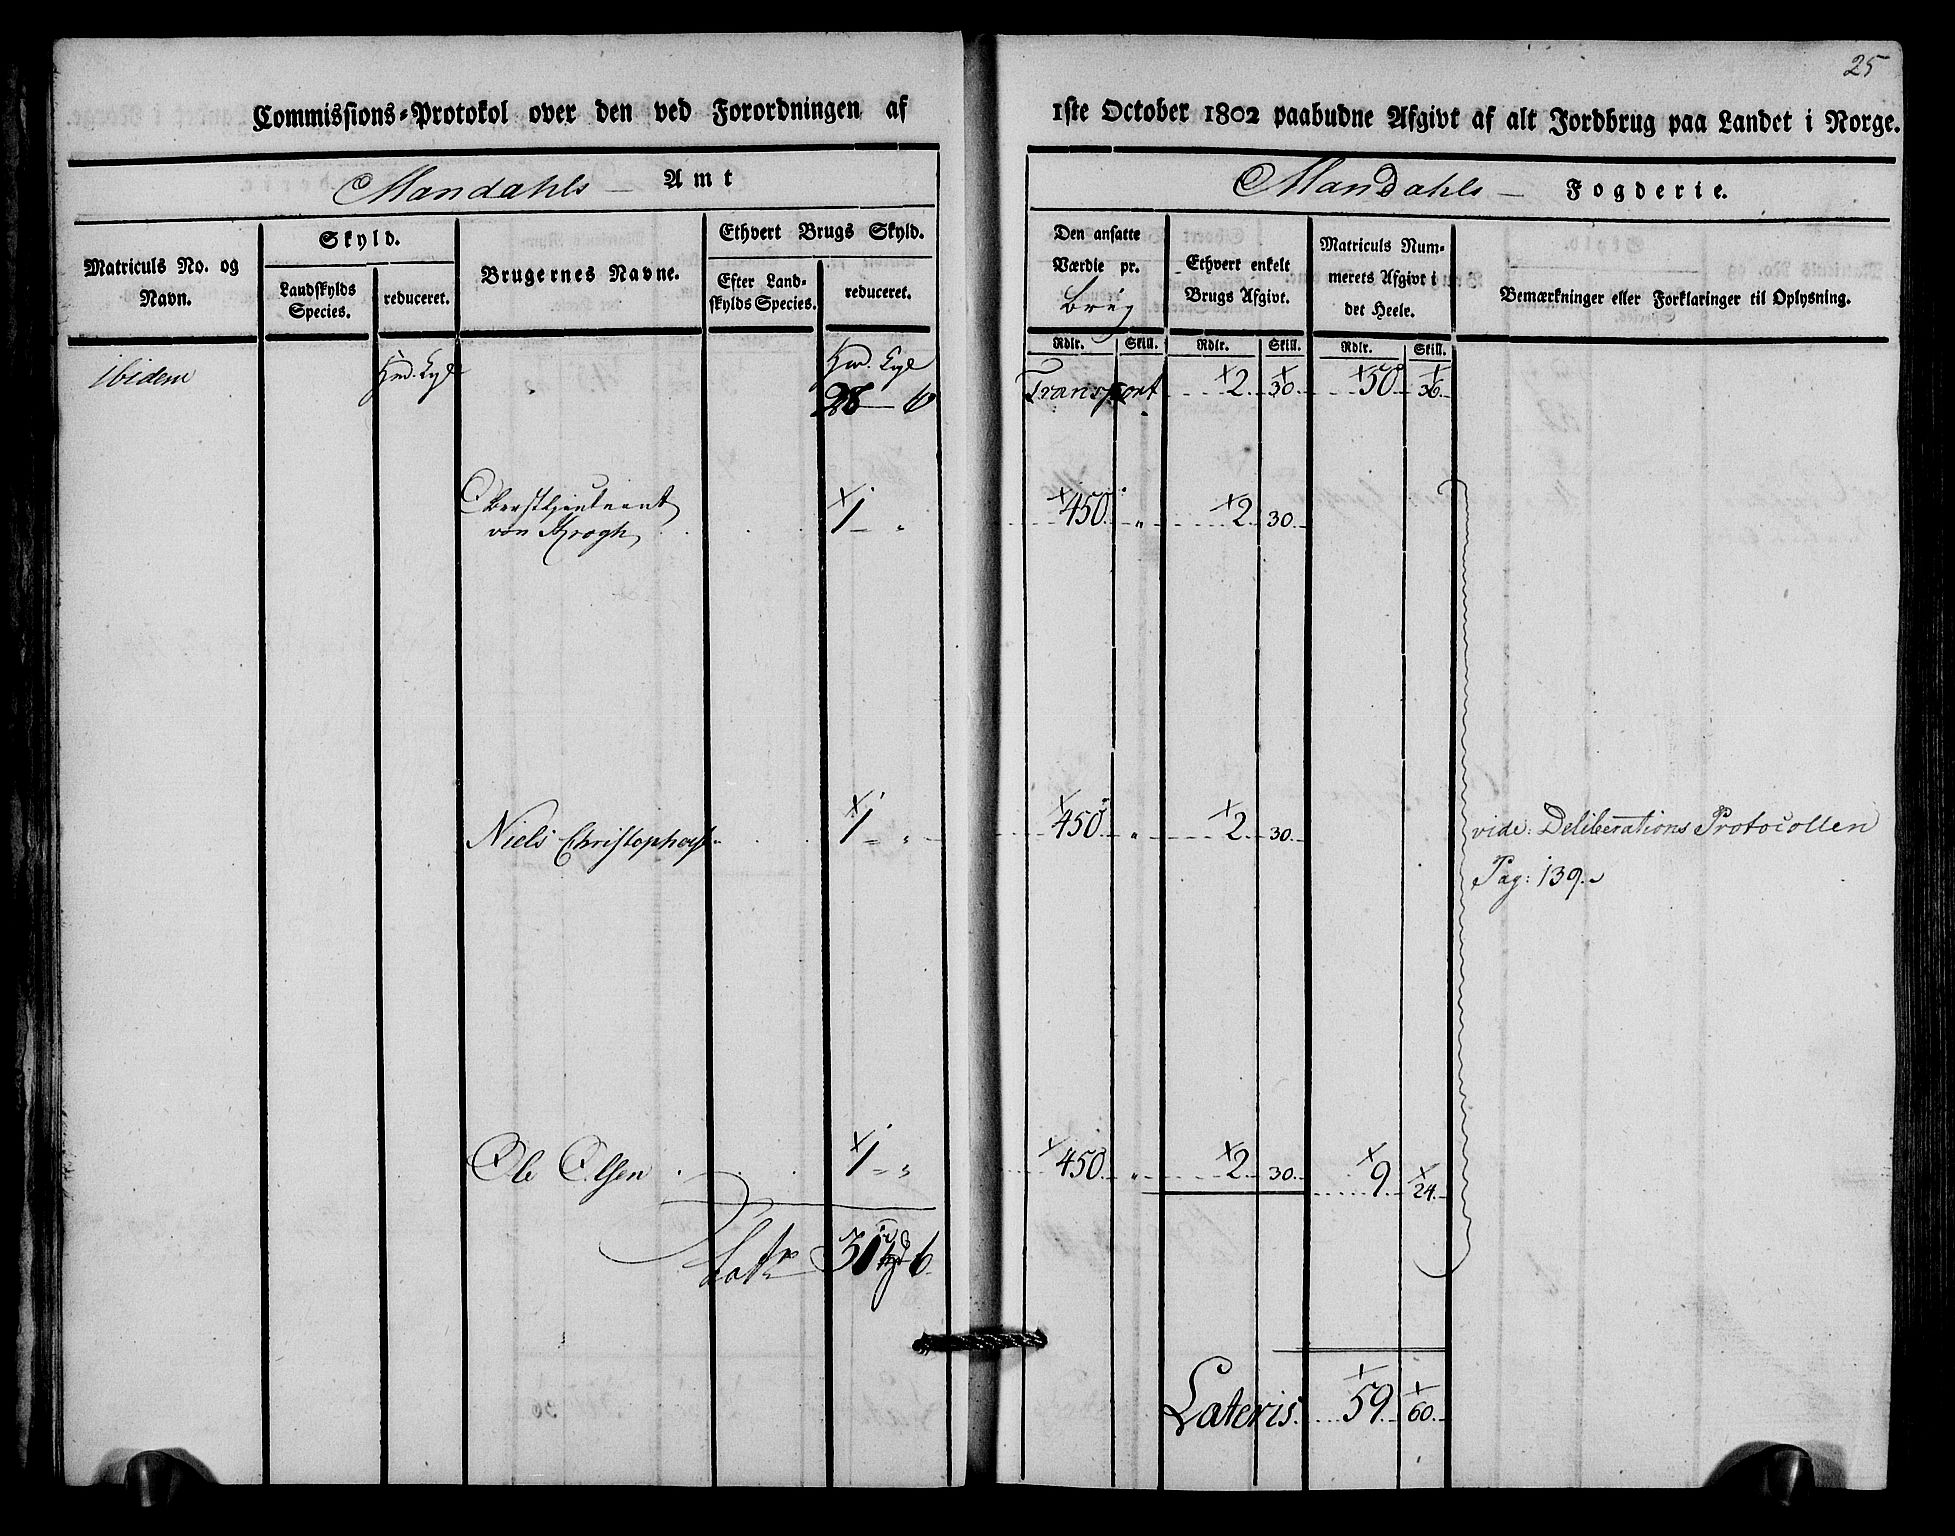 25
Commissions-Protokol over den ved Forordningen af 1ste October 1802 paabudne Afgivt af alt Jordbrug paa Landet i Norge.
Mandahls Amt
Mandahls Fogderie.
Matriculs No. og Navn.
Skyld.
Landskylds Species.
reduceret.
Brugernes Navne.
Ethvert Brugs Skyld.
Efter Landskylds Species.
reduceret.
Den ansatte Værdie pr. brug
Ethvert enkelt Brugs Afgivt.
Matriculs Nummerets Afgivt i det Heele.
Bemærkninger eller Forklaringer til Oplysning.
Rdlr. Skill. Rdlr. Skill. Rdlr. Skill.
ibidem
28 — 6 Transport 2 30 50 36
Oberstlieutnant
von Krogh 1 — „ 450 „ 2 30
Niels Christophers 1 „ 450 „ 2 30
vide: Deliberations Protocollen
Pag: 139.
Ole Olsen 1 „ 450 „ 2 30 9 24
Lats 31 6
Lateris 59 60